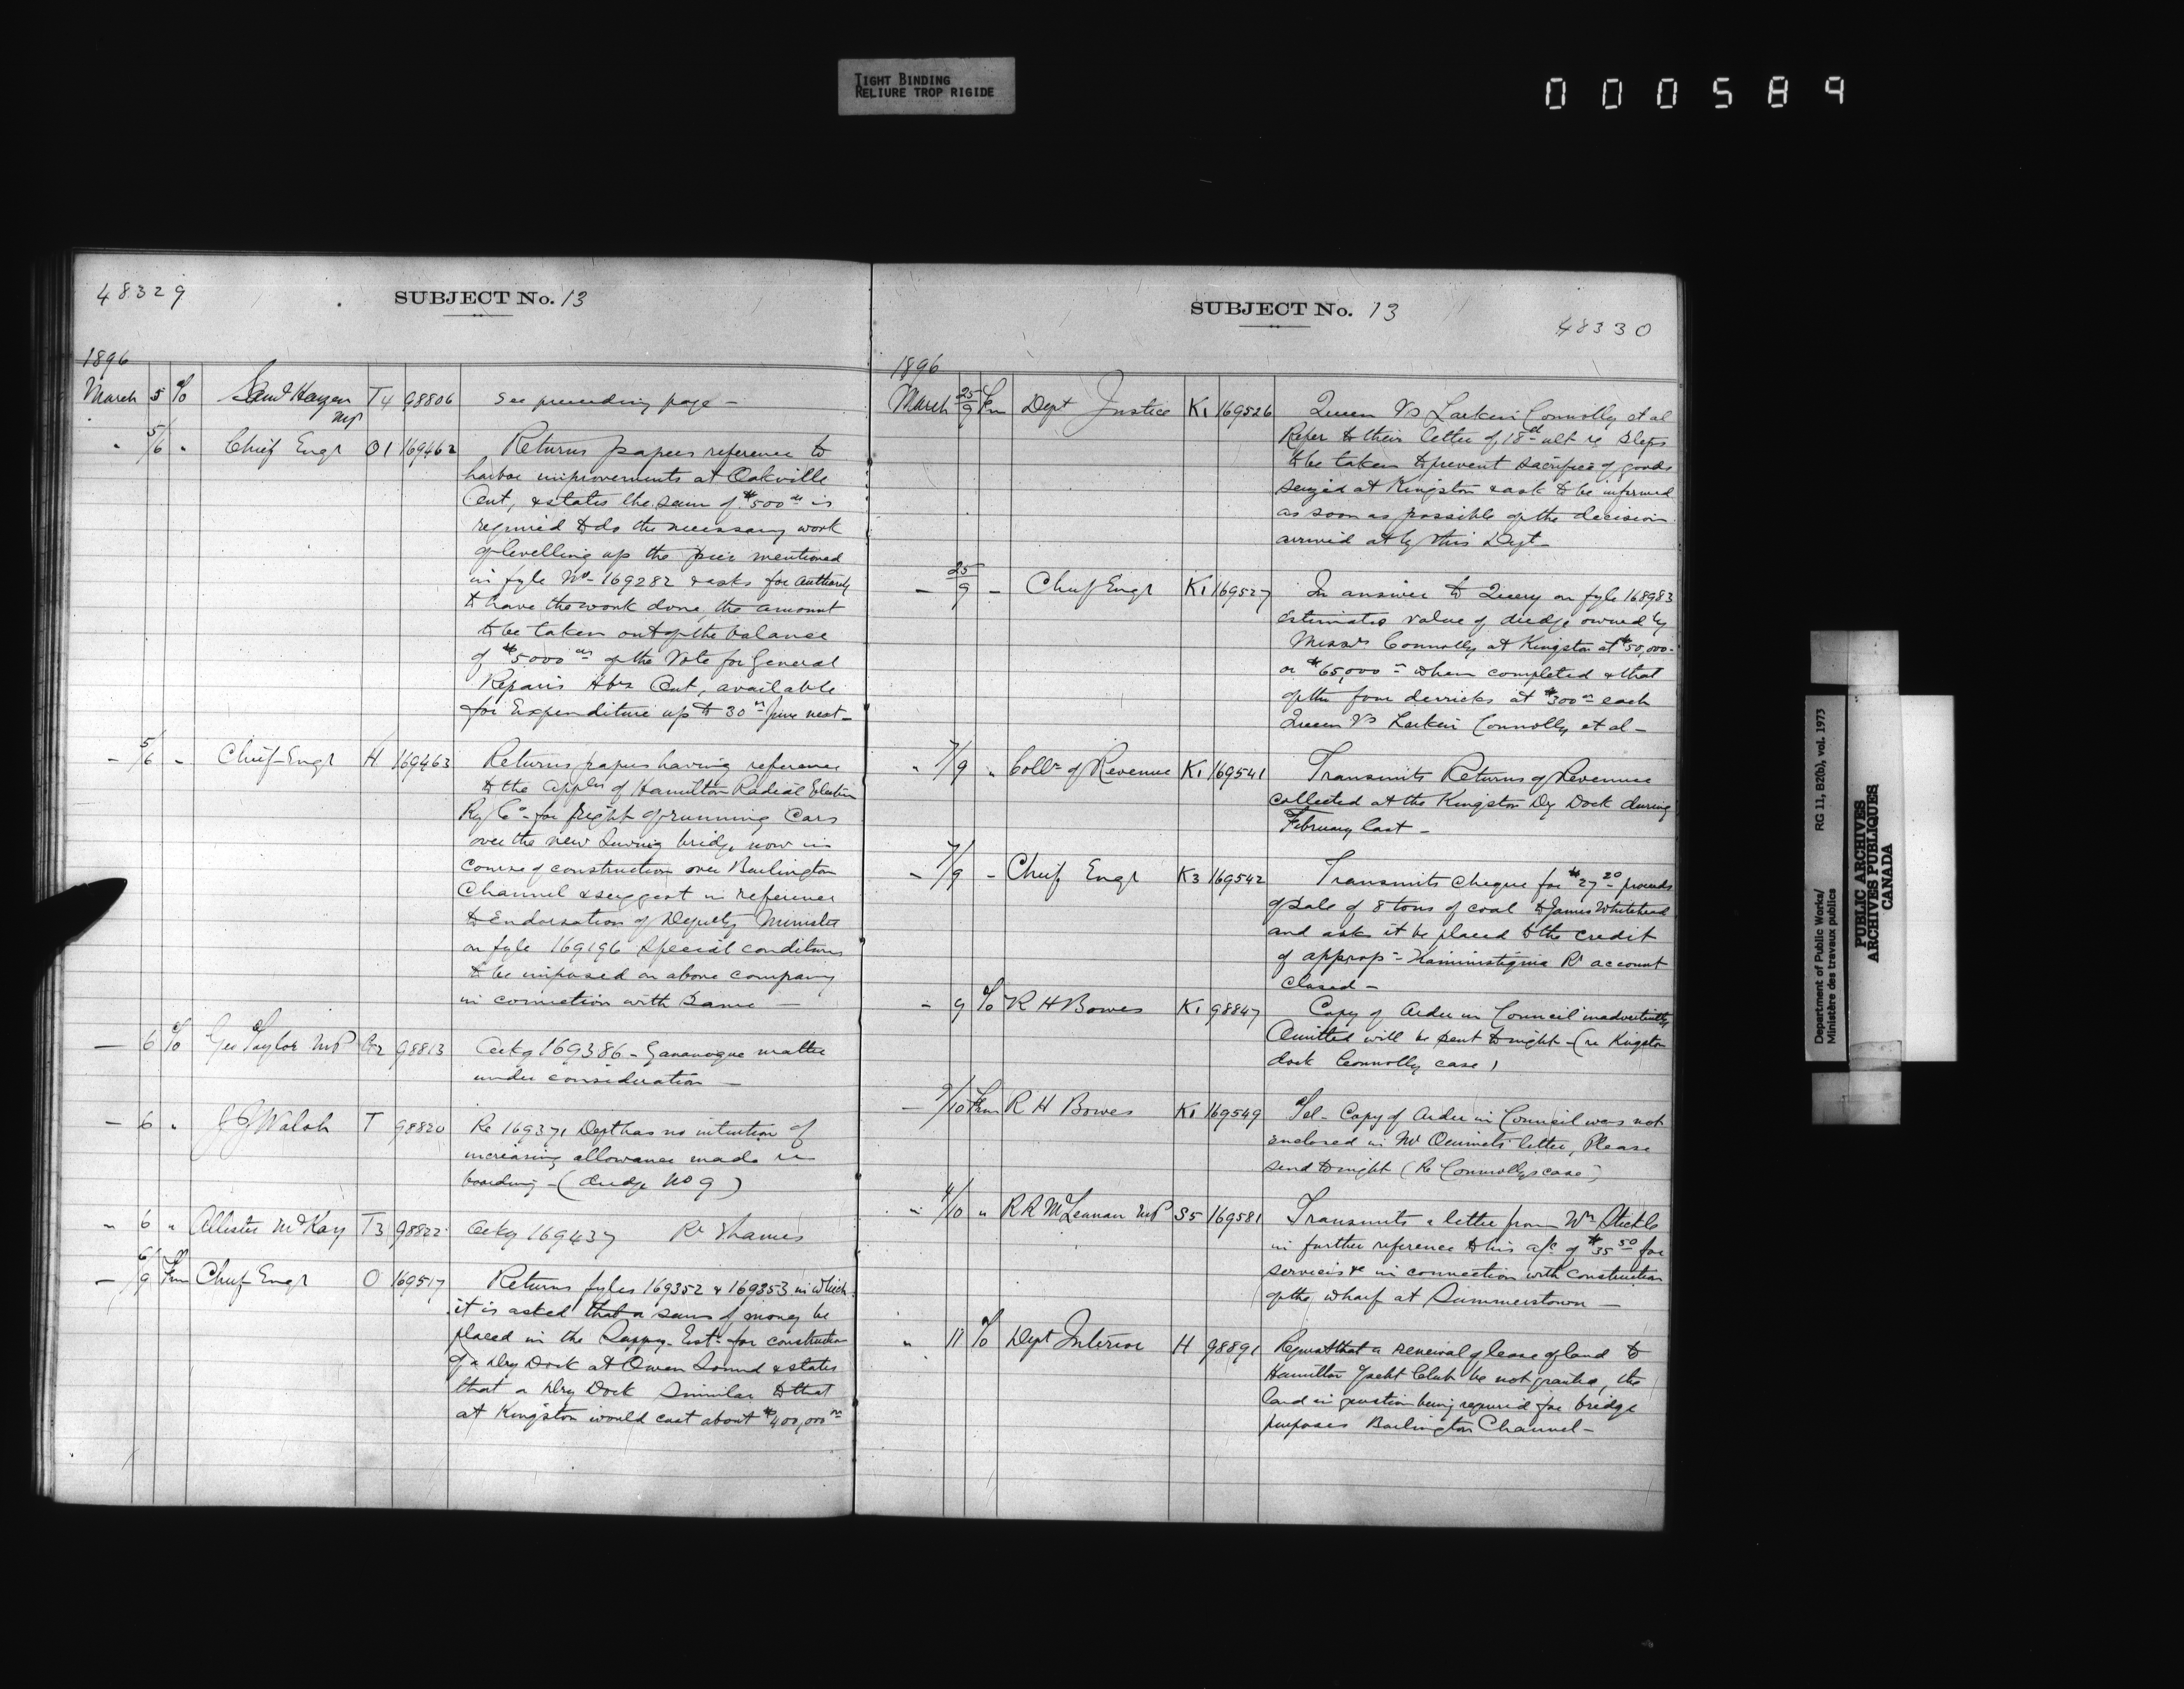 TIGHT BINDING
RELIURE TROP RIGIDE
000589
48329
SUBJECT No. 13
1896
March 5 To Saml Hagen MP T4 98806 See preceding page -
" 5/6 " Chief Engr O1 169462 Returns papers reference to
harbor improvements at Oakville
Ont, & states the sum of $500 00 is
required to do the necessary work
of levelling up the pier mentioned
in fyle No- 169282 & asks for authority
to have the work done, the amount
to be taken out of the balance
of $5000 00 of the Vote for General
Repairs Hbrs Ont, available
for Expenditure up to 30th June next -
- 5/6 " Chief Engr H 169463 Returns papers having reference
to the appln of Hamilton Radial Electric
Ry Co - for right of running Cars
over the new Swing bridge now in
course of construction over Burlington
Channel & suggest in reference
to Endorsation of Deputy Minister
on fyle 169196 special conditions
to be imposed on above company
in connection with same -
- 6 To Geo Taylor MP 98813 Ackg 169386 - Gananoque matter
under consideration -
- 6 " J J Walsh T 98820 Re 169371 Dept has no intention of
increasing allowance made re
boarding - (dredge No 9)
" 6 " Allister McKay T3 98822 Ackg 169437 Rr Thames
- 6/9 Frm Chief Engr O 169517 Returns fyles 169352 & 169353 in which
it is asked that a sum of money be
placed in the Suppy. Ests for construction
of a Dry Dock at Owen Sound & states
that a Dry Dock similar to that
at Kingston would cost about $400,000 00
SUBJECT No. 13
48330
1896
March 25/9 Frm Dept Justice K1 169526 Queen Vs Larkin Connolly et al
Refer to their letter of 18th ult re steps
to be taken to prevent sacrifice of goods
seized at Kingston & ask to be informed
as soon as possible of the decision
arrived at by this Dept -
- 25/9 - Chief Engr K1 169527 In answer to Query on fyle 168983
estimates value of dredge owned by
Messrs Connolly at Kingston at $50,000 -
or $65,000 - when completed & that
of the four derricks at $300 00 each
Queen Vs Larkin Connolly et al -
" 7/9 " Collr of Revenue K1 169541 Transmits Returns of Revenue
collected at the Kingston Dry Dock during
February last -
- 7/9 - Chief Engr K3 169542 Transmits cheque for $27 20 proceeds
of sale of 8 tons of coal to James Whitehead
and asks it be placed to the credit
of approp - Kaministiquia Rr account
closed -
- 9 To R H Bowes K1 98847 Copy of Order in Council inadvertently
Omitted will be sent tonight - (re Kingston
dock Connolly case)
- 9/10 Frm R H Bowes K1 169549 Tel - Copy of Order in Council was not
enclosed in Mr Ouimets letter, Please
send tonight (Re Connollys case)
" 4/10 " R R McLennan MP S5 169581 Transmits a letter from Wm Stickle
in further reference to his a/c of $35 50 for
services &c in connection with construction
of the wharf at Summerstown -
" 11 To Dept Interior H 98891 Request that a renewal of lease of land to
Hamilton Yacht Club be not granted, the
land in question being required for bridge
purposes Burlington Channel -
Department of Public Works/ RG 11, B2(b), vol. 1973
Ministère des travaux publics
PUBLIC ARCHIVES
ARCHIVES PUBLIQUES
CANADA